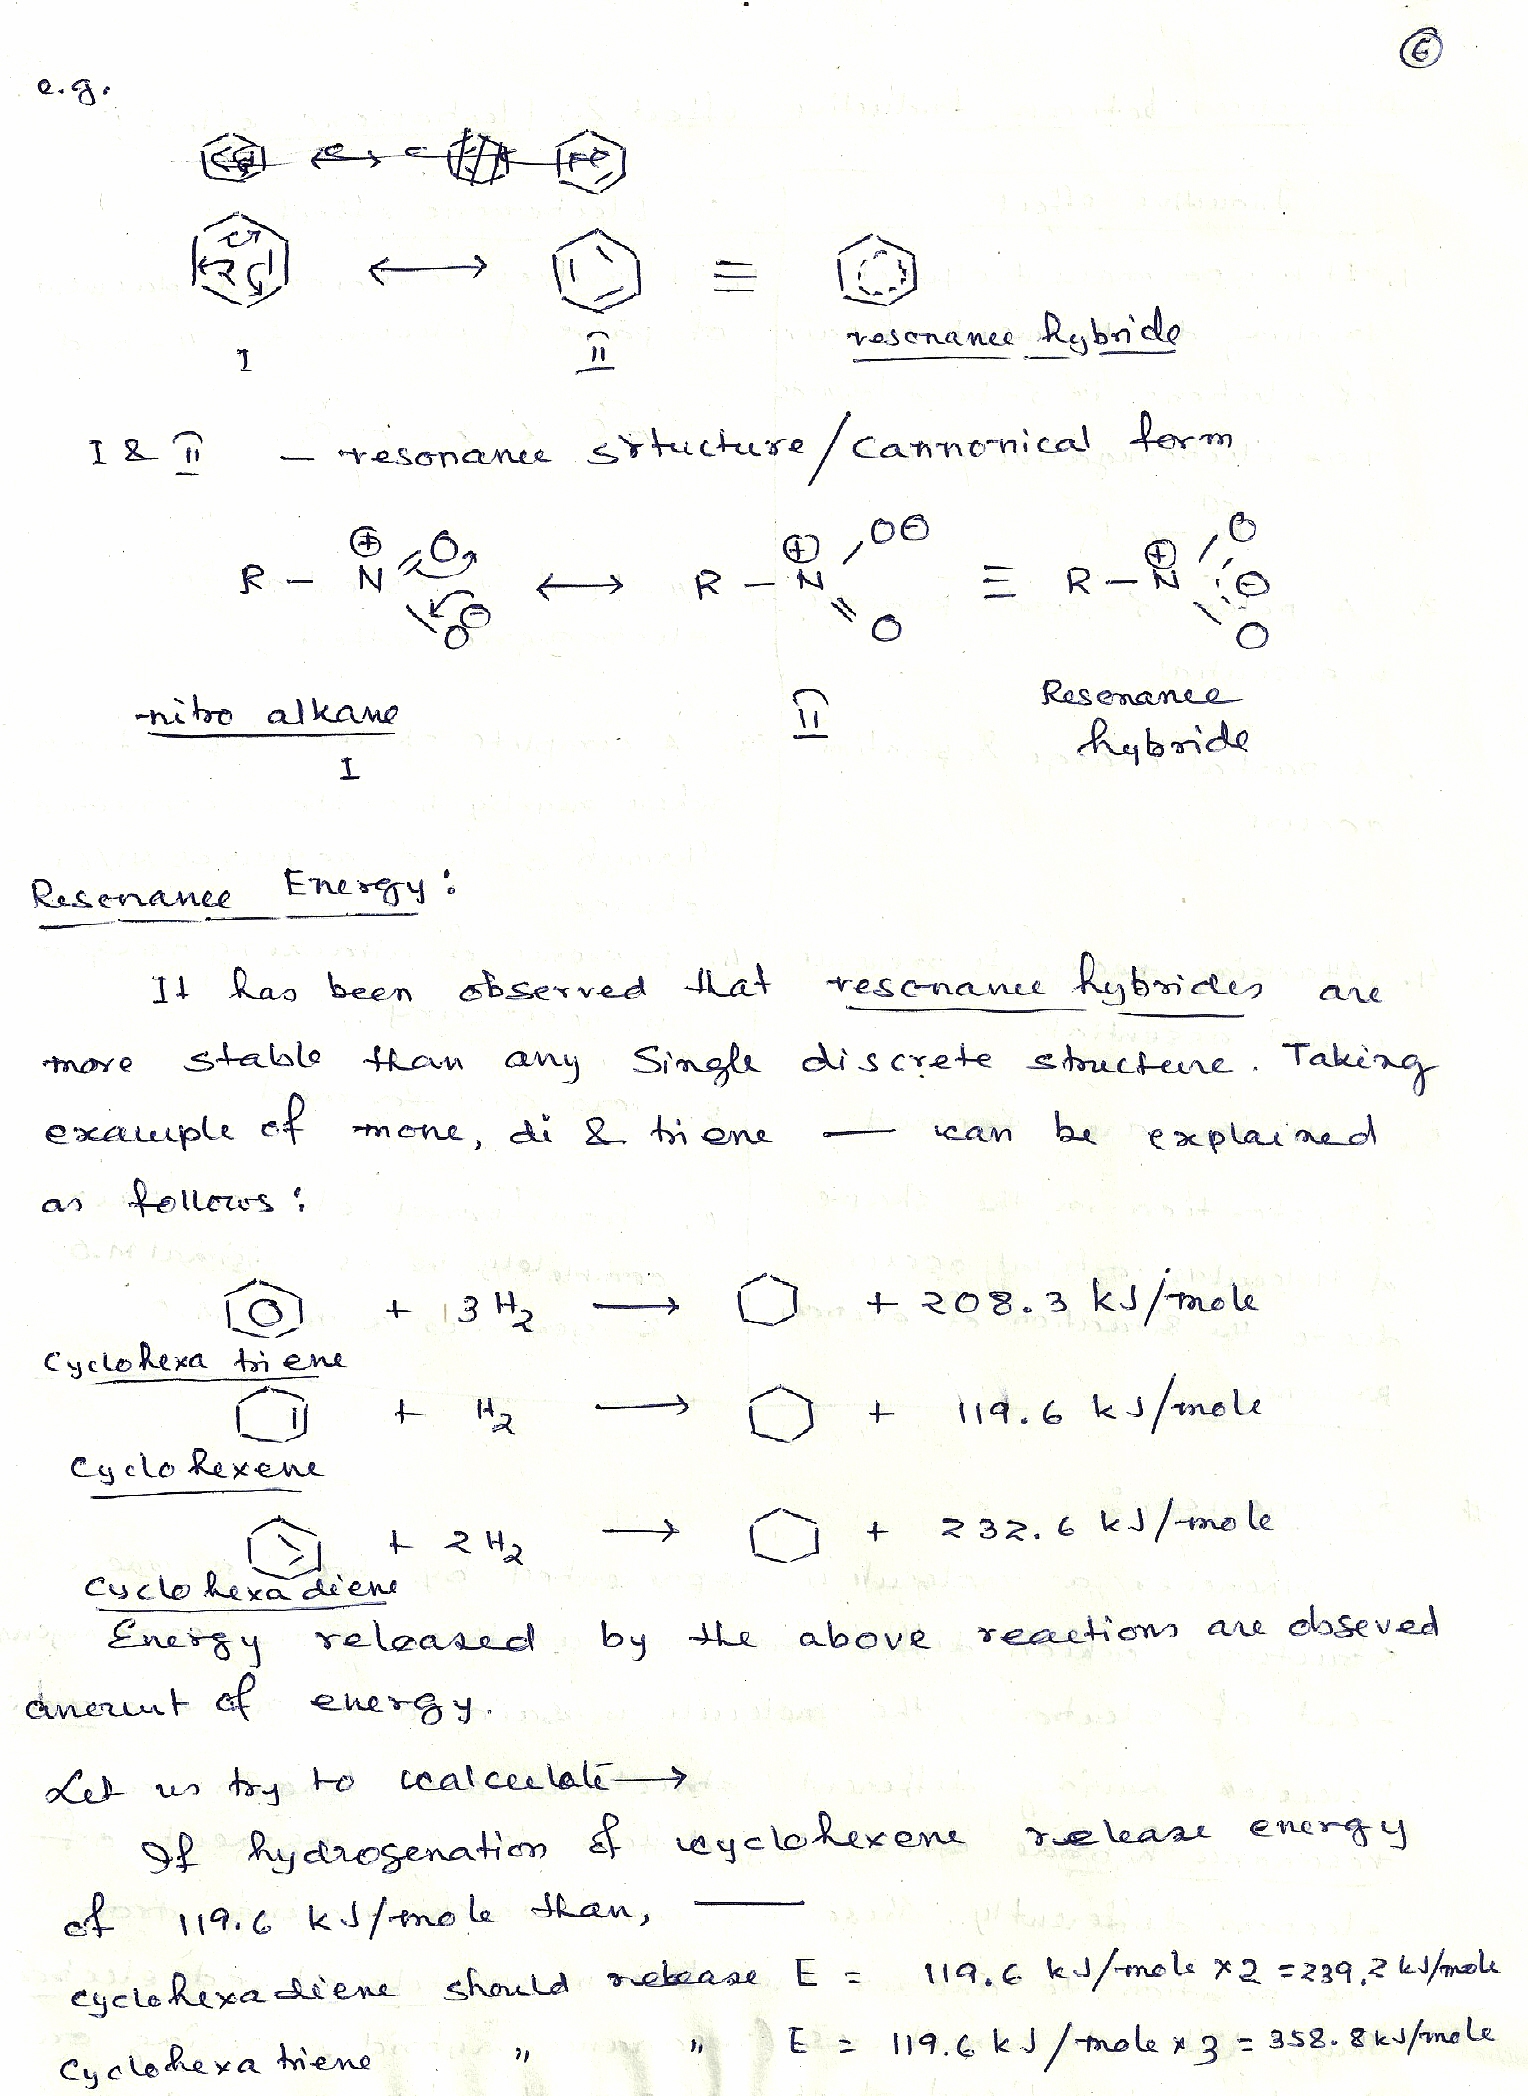 6
e.g.
I
II
resonance hybride
I & II - resonance srtucture/cannonical form
R - N O O
R - N O O
R - N O O
nitro alkane
I
II
Resonance hybride
Resonance Energy:
It has been observed that resonance hybrides are
more stable than any single discrete structure. Taking
example of mone, di & triene — can be explained
as follows:
+ 3H2 → + 208.3 kJ/mole
Cyclohexa triene
+ H2 → + 119.6 kJ/mole
Cyclohexene
+ 2H2 → + 232.6 kJ/mole
Cyclohexadiene
Energy released by the above reactions are obseved
amount of energy.
Let us try to calculate →
If hydrogenation of cyclohexene release energy
of 119.6 kJ/mole than, —
cyclohexadiene should release E = 119.6 kJ/mole x2 = 239.2 kJ/mole
Cyclohexatriene " " E = 119.6 kJ/mole x 3 = 358.8 kJ/mole